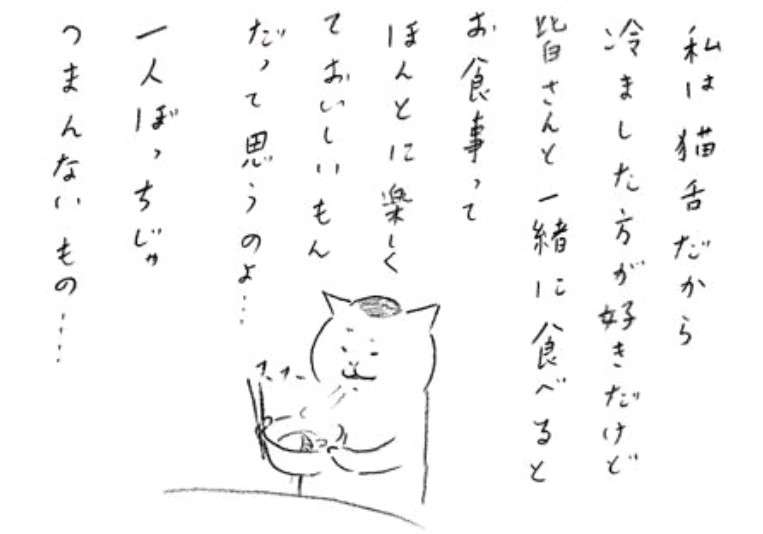 私は猫舌だから
冷ました方が好きだけど
皆さんと一緒に食べると
お食事って
ほんとに楽しく
ておいしいもん
だって思うのよ…
一人ぼっちじゃ
つまんないもの……